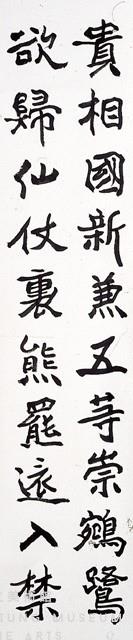 貴相國新兼五等崇鵷鷺
欲歸仙仗裏熊羆還入禁
MUSEUM
ARTS